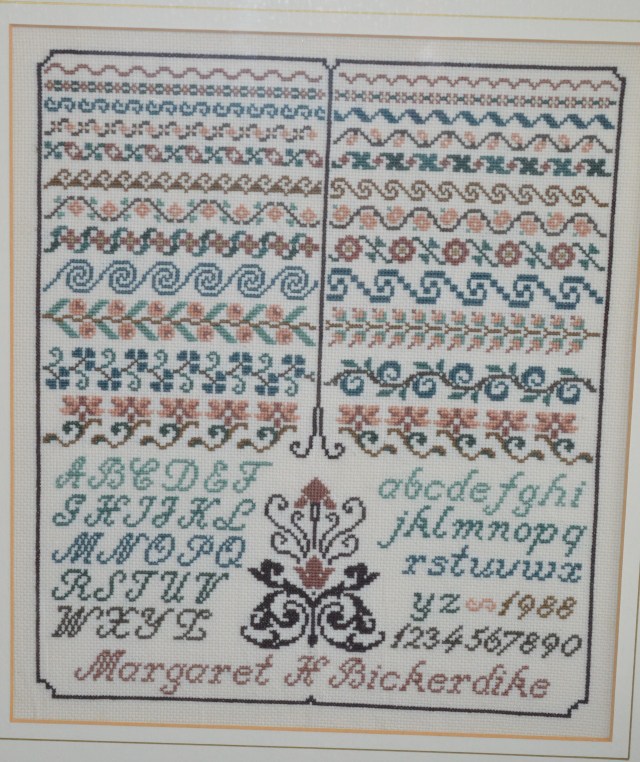 ABCDEF
GHIJKL
MNOPQ
RSTUV
WXYZ
abcdefghi
jklmnopq
rstuvwx
yz 1988
1234567890
Margaret H Bickerdike